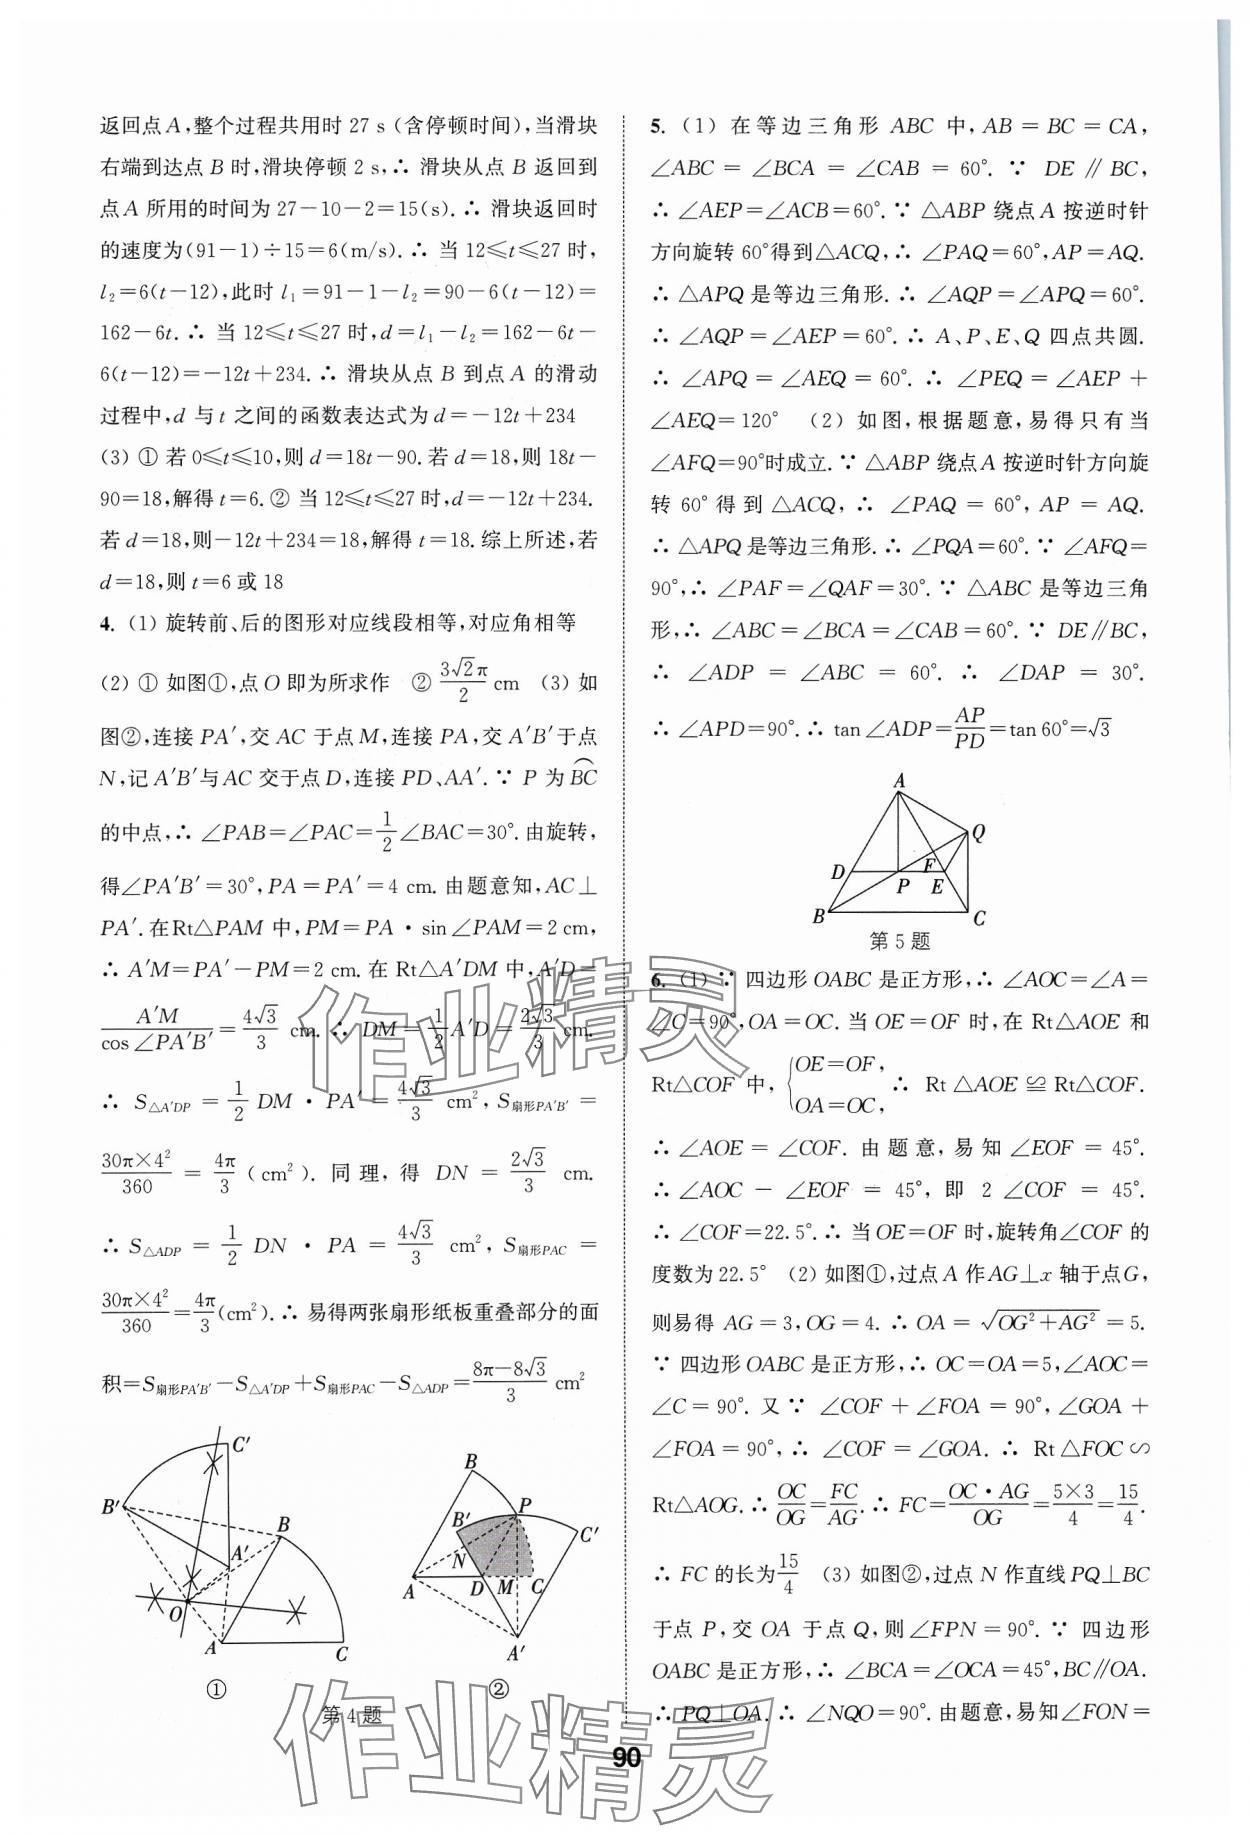 返回点A,整个过程共用时27 s(含停顿时间),当滑块
右端到达点B时,滑块停顿2 s,∴ 滑块从点B返回到
点A所用的时间为27-10-2=15(s).∴ 滑块返回时
的速度为(91-1)÷15=6(m/s).∴ 当12≤t≤27时,
l₂=6(t-12),此时l₁=91-1-l₂=90-6(t-12)=
162-6t.∴ 当12≤t≤27时,d=l₁-l₂=162-6t-
6(t-12)=-12t+234.∴ 滑块从点B到点A的滑动
过程中,d与t之间的函数表达式为d=-12t+234
(3) ① 若0≤t≤10,则d=18t-90.若d=18,则18t-
90=18,解得t=6.② 当12≤t≤27时,d=-12t+234.
若d=18,则-12t+234=18,解得t=18.综上所述,若
d=18,则t=6或18
4. (1) 旋转前、后的图形对应线段相等,对应角相等
(2) ① 如图①,点O即为所求作 ② 3√2π/2 cm (3) 如
图②,连接PA′,交AC于点M,连接PA,交A′B′于点
N,记A′B′与AC交于点D,连接PD、AA′.∵ P为⌒BC
的中点,∴ ∠PAB=∠PAC=1/2∠BAC=30°.由旋转,
得∠PA′B′=30°,PA=PA′=4 cm.由题意知,AC⊥
PA′.在Rt△PAM中,PM=PA·sin∠PAM=2 cm,
∴ A′M=PA′-PM=2 cm.在Rt△A′DM中,A′D=
A′M/cos∠PA′B′=4√3/3 cm.∴ DM=1/2A′D=2√3/3 cm.
∴ S△A′DP=1/2DM·PA′=4√3/3 cm²,S扇形PA′B′=
30π×4²/360=4π/3(cm²).同理,得DN=2√3/3 cm.
∴ S△ADP=1/2DN·PA=4√3/3 cm²,S扇形PAC=
30π×4²/360=4π/3(cm²).∴ 易得两张扇形纸板重叠部分的面
积=S扇形PA′B′-S△A′DP+S扇形PAC-S△ADP=8π-8√3/3 cm²
C′
B′
B
A′
O
A
C
①
B
P
B′
C′
N
A
D
M
C
A′
②
第4题
5. (1) 在等边三角形ABC中,AB=BC=CA,
∠ABC=∠BCA=∠CAB=60°.∵ DE∥BC,
∴ ∠AEP=∠ACB=60°.∵ △ABP绕点A按逆时针
方向旋转60°得到△ACQ,∴ ∠PAQ=60°,AP=AQ.
∴ △APQ是等边三角形.∴ ∠AQP=∠APQ=60°.
∴ ∠AQP=∠AEP=60°.∴ A、P、E、Q四点共圆.
∴ ∠APQ=∠AEQ=60°.∴ ∠PEQ=∠AEP+
∠AEQ=120° (2) 如图,根据题意,易得只有当
∠AFQ=90°时成立.∵ △ABP绕点A按逆时针方向旋
转60°得到△ACQ,∴ ∠PAQ=60°,AP=AQ.
∴ △APQ是等边三角形.∴ ∠PQA=60°.∵ ∠AFQ=
90°,∴ ∠PAF=∠QAF=30°.∵ △ABC是等边三角
形,∴ ∠ABC=∠BCA=∠CAB=60°.∵ DE∥BC,
∴ ∠ADP=∠ABC=60°.∴ ∠DAP=30°.
∴ ∠APD=90°.∴ tan∠ADP=AP/PD=tan60°=√3
A
Q
D
P
F
E
B
C
第5题
6. (1) ∵ 四边形OABC是正方形,∴ ∠AOC=∠A=
∠C=90°,OA=OC.当OE=OF时,在Rt△AOE和
Rt△COF中,{OE=OF, OA=OC, ∴ Rt△AOE≌Rt△COF.
∴ ∠AOE=∠COF.由题意,易知∠EOF=45°.
∴ ∠AOC-∠EOF=45°,即2∠COF=45°.
∴ ∠COF=22.5°.∴ 当OE=OF时,旋转角∠COF的
度数为22.5° (2) 如图①,过点A作AG⊥x轴于点G,
则易得AG=3,OG=4.∴ OA=√(OG²+AG²)=5.
∵ 四边形OABC是正方形,∴ OC=OA=5,∠AOC=
∠C=90°.又∵ ∠COF+∠FOA=90°,∠GOA+
∠FOA=90°,∴ ∠COF=∠GOA.∴ Rt△FOC∽
Rt△AOG.∴ OC/OG=FC/AG.∴ FC=OC·AG/OG=5×3/4=15/4.
∴ FC的长为15/4 (3) 如图②,过点N作直线PQ⊥BC
于点P,交OA于点Q,则∠FPN=90°.∵ 四边形
OABC是正方形,∴ ∠BCA=∠OCA=45°,BC∥OA.
∴ PQ⊥OA.∴ ∠NQO=90°.由题意,易知∠FON=
90
作业精灵
作业精灵